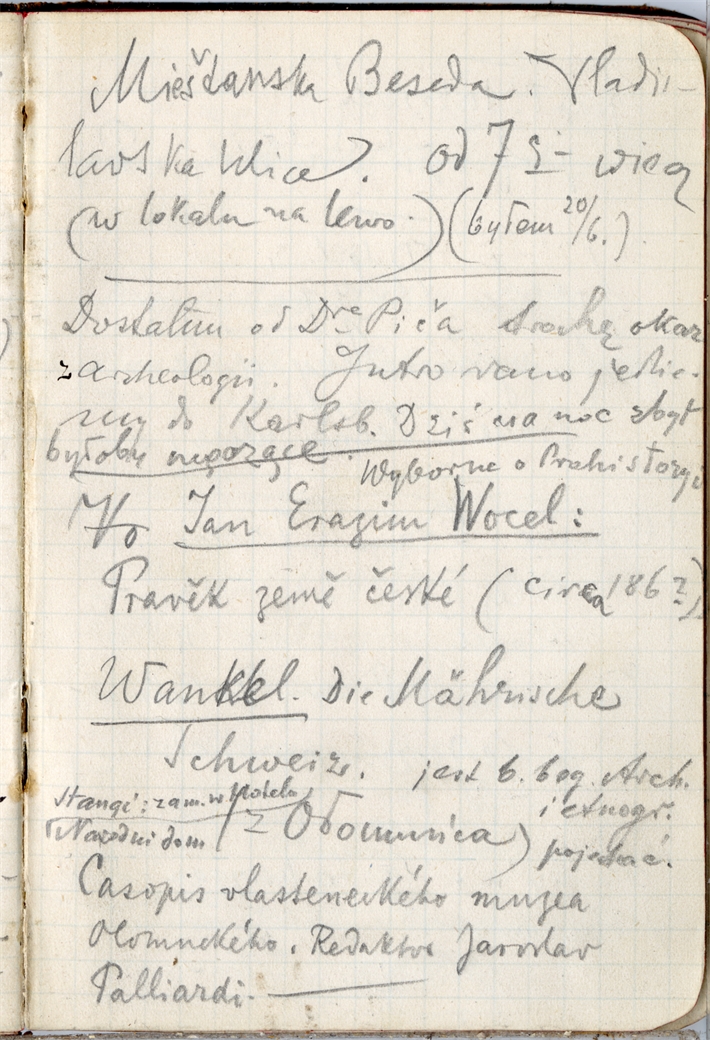 Mieštanska Beseda. Vladis-
lavska Ulice. od 7 g- wiecz
(w lokalu na lewo.) (byłem 20/6.)
Dostałem od Dra Piča trochę okaz
z archeologii. Jutro rano jedzie-
my do Karlsb. Dziś na noc zbyt
byłoby męczące.
Wyborne o Prehistoryi
Jan Erazim Wocel:
Pravěk země české (circa 186?)
Wankel. Die Mährische
Schweiz.
jest b. bog. Arch.
i etnogr.
pojechać.
stanąć: zam. w Hotelu
Narodni dom
(z Ołomuńca)
Casopis vlasteneckého muzea
Olomuckého. Redaktor Jaroslav
Palliardi.